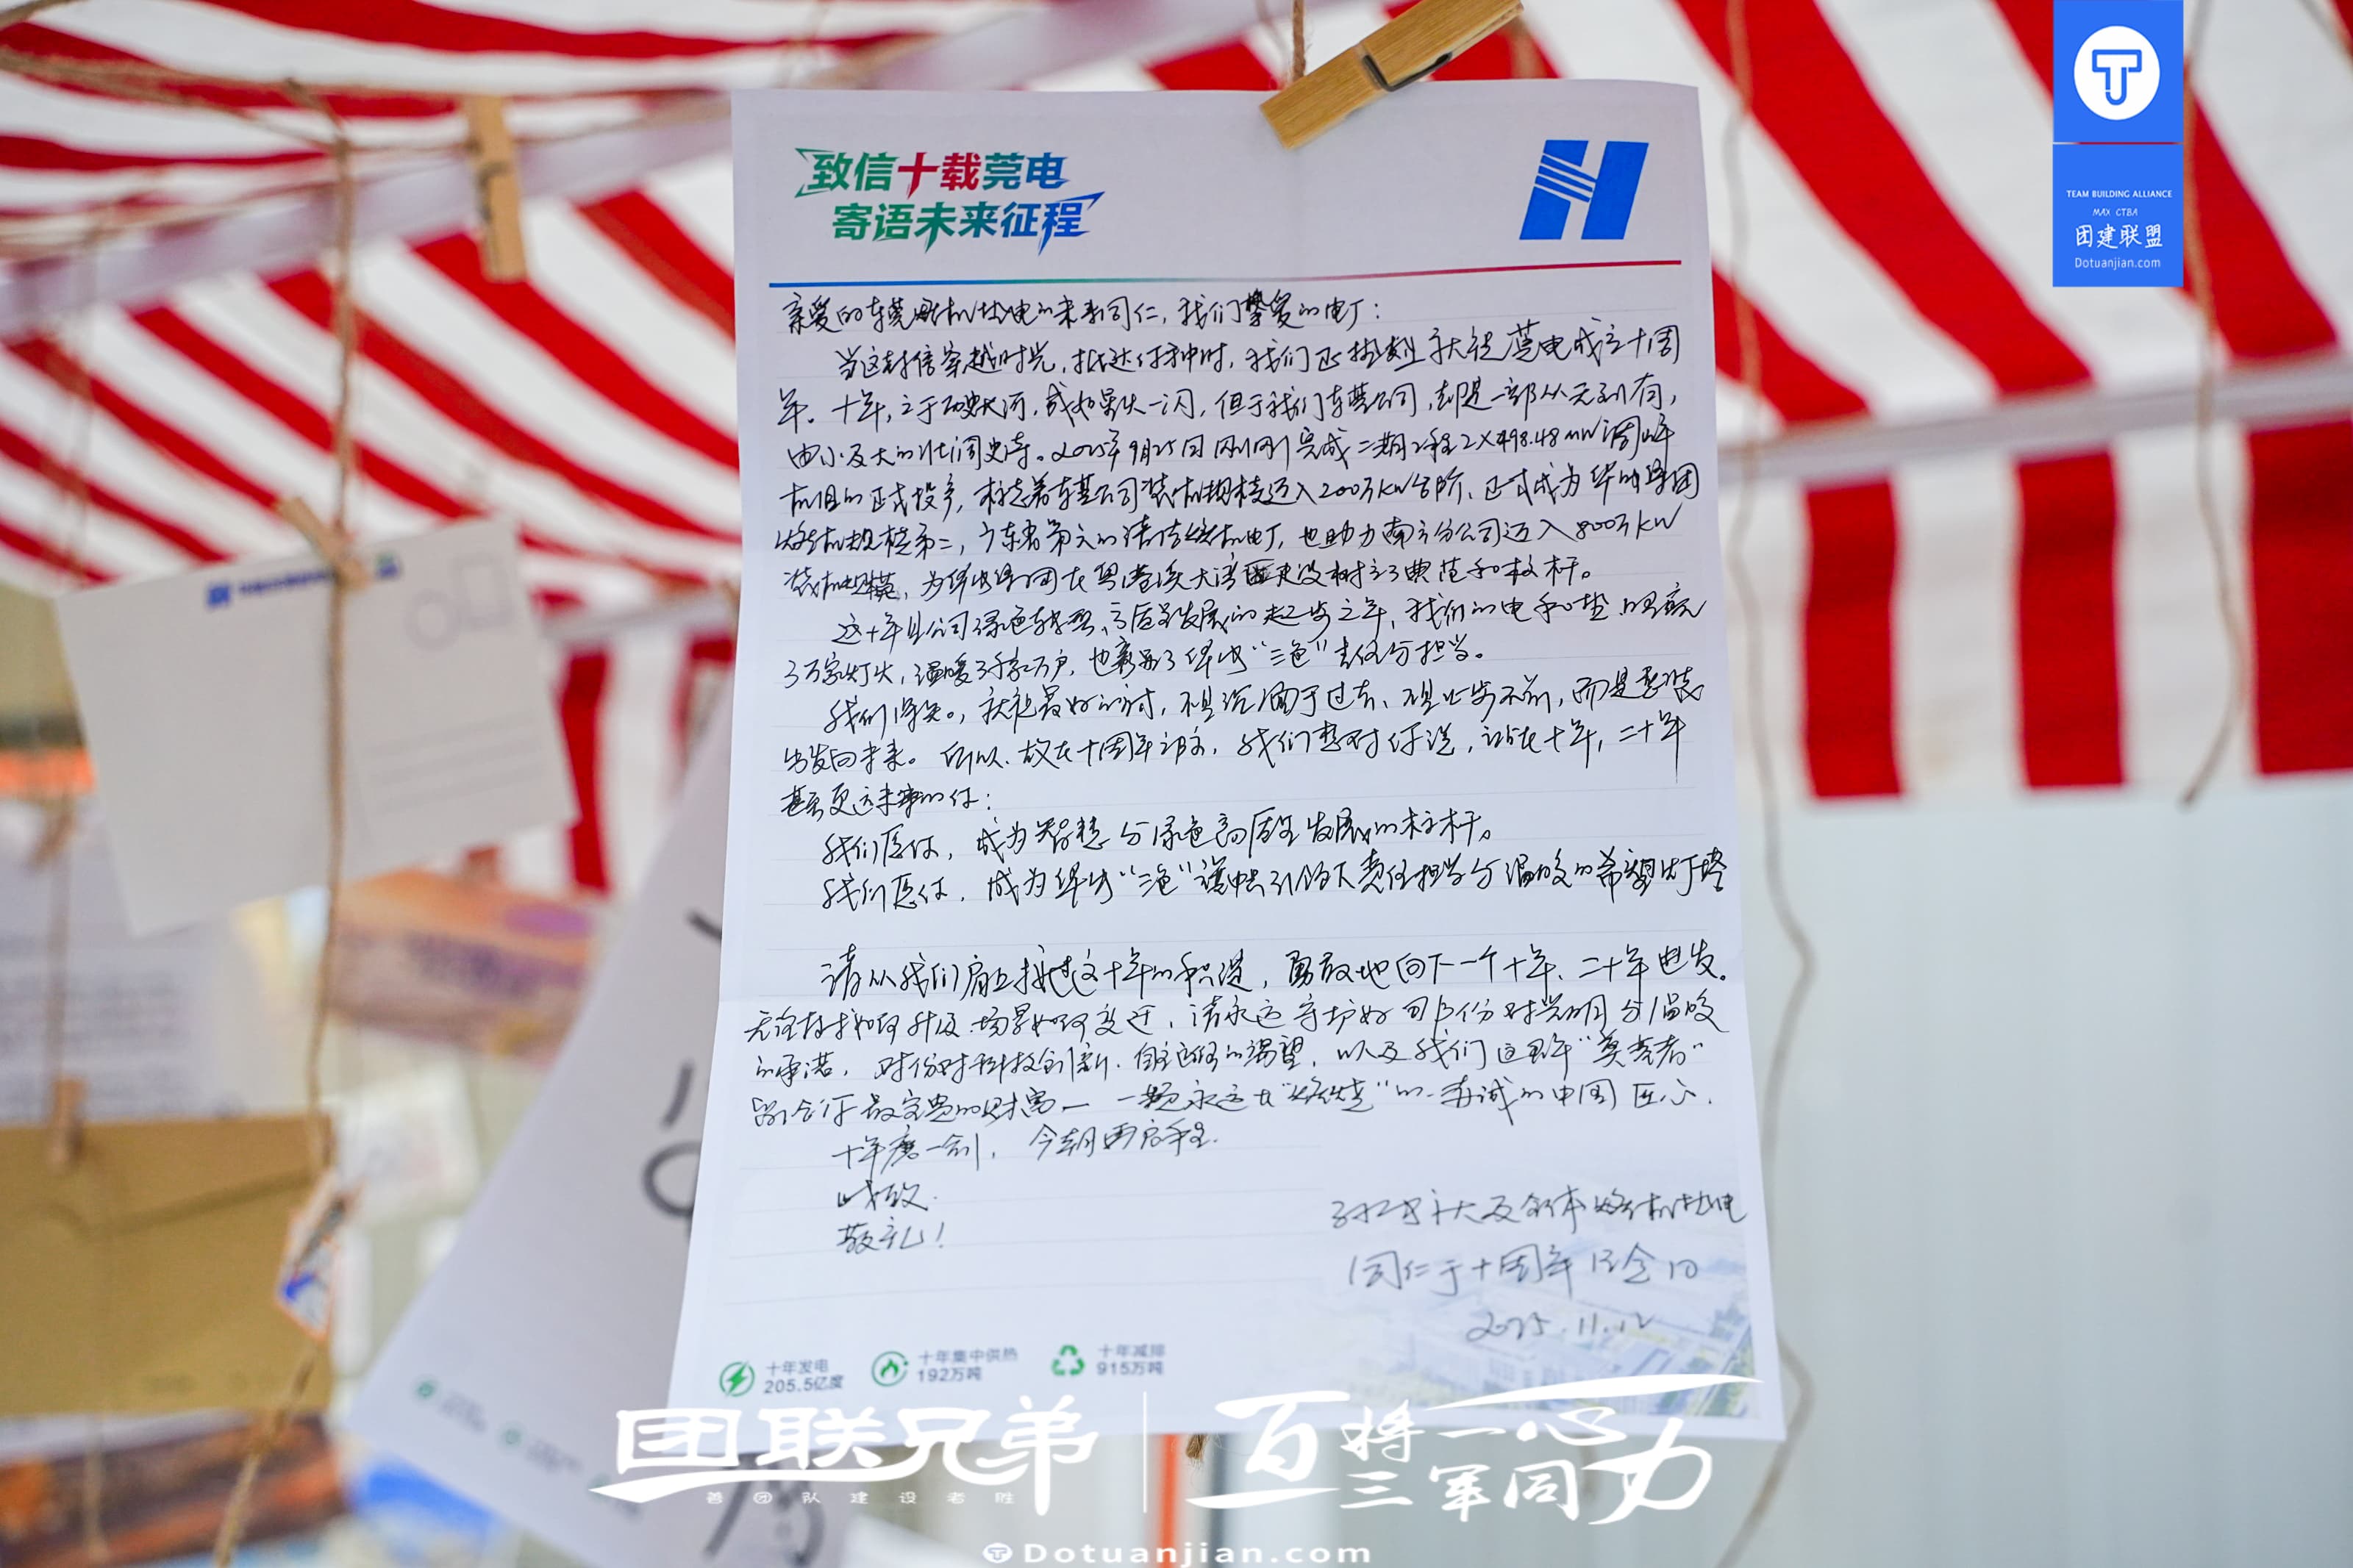 TEAM BUILDING ALLIANCE
MAX CTBA
团建联盟
Dotuanjian.com
致信十载莞电
寄语未来征程
亲爱的东莞燃机热电的未来同仁，我们挚爱的电厂：
当这封信穿越时光，抵达你手中时，我们正 莞电成立十周
年。十年，之于历史长河，或如星火一闪，但于我们东莞公司，却是一部从无到有，
由小及大的壮阔史诗。2025年9月25日刚刚完成二期工程2×498.48MW调峰
机组的正式投产，标志着东莞公司装机规模迈入200万KW台阶、正式成为华能集团
燃机规模第二，广东省第六的清洁燃机电厂，也助力南方分公司迈入800万KW
装机规模，为华能集团在粤港澳大湾区建设树立了典范和标杆。
这十年是公司绿色转型、高质量发展的起步之年，我们的电和热照亮
了万家灯火，温暖了千家万户，也彰显了华能“三色”责任与担当。
我们深知，庆祝最好的 ，不是沉湎于过去、不是止步不前，而是整装
出发向未来。所以、放在十周年之际，我们想对你说，站在十年，二十年
甚至更远未来的你：
我们愿你，成为智慧与绿色高质量发展的标杆。
我们愿你，成为华能“三色” 引领下责任担当与温暖的希望灯塔
请从我们肩上接过这十年的积淀，勇敢地向下一个十年、二十年进发。
无论技术如何升级、场景如何变迁，请永远守护好那份对光明与温暖
的承诺，对份对科技创新、自主 的渴望，以及我们这群“奠基者”
留给你最宝贵的财富— 一颗永远在“燃烧”的、赤诚的中国匠心。
十年磨一剑，今朝再启程.
此致.
敬礼！
及全体燃机热电
同仁于十周年纪念日
2025.11.12
十年发电
205.5亿度
十年集中供热
192万吨
十年减排
915万吨
团联兄弟
善团队建设者胜
百将一心
三军同力
Dotuanjian.com